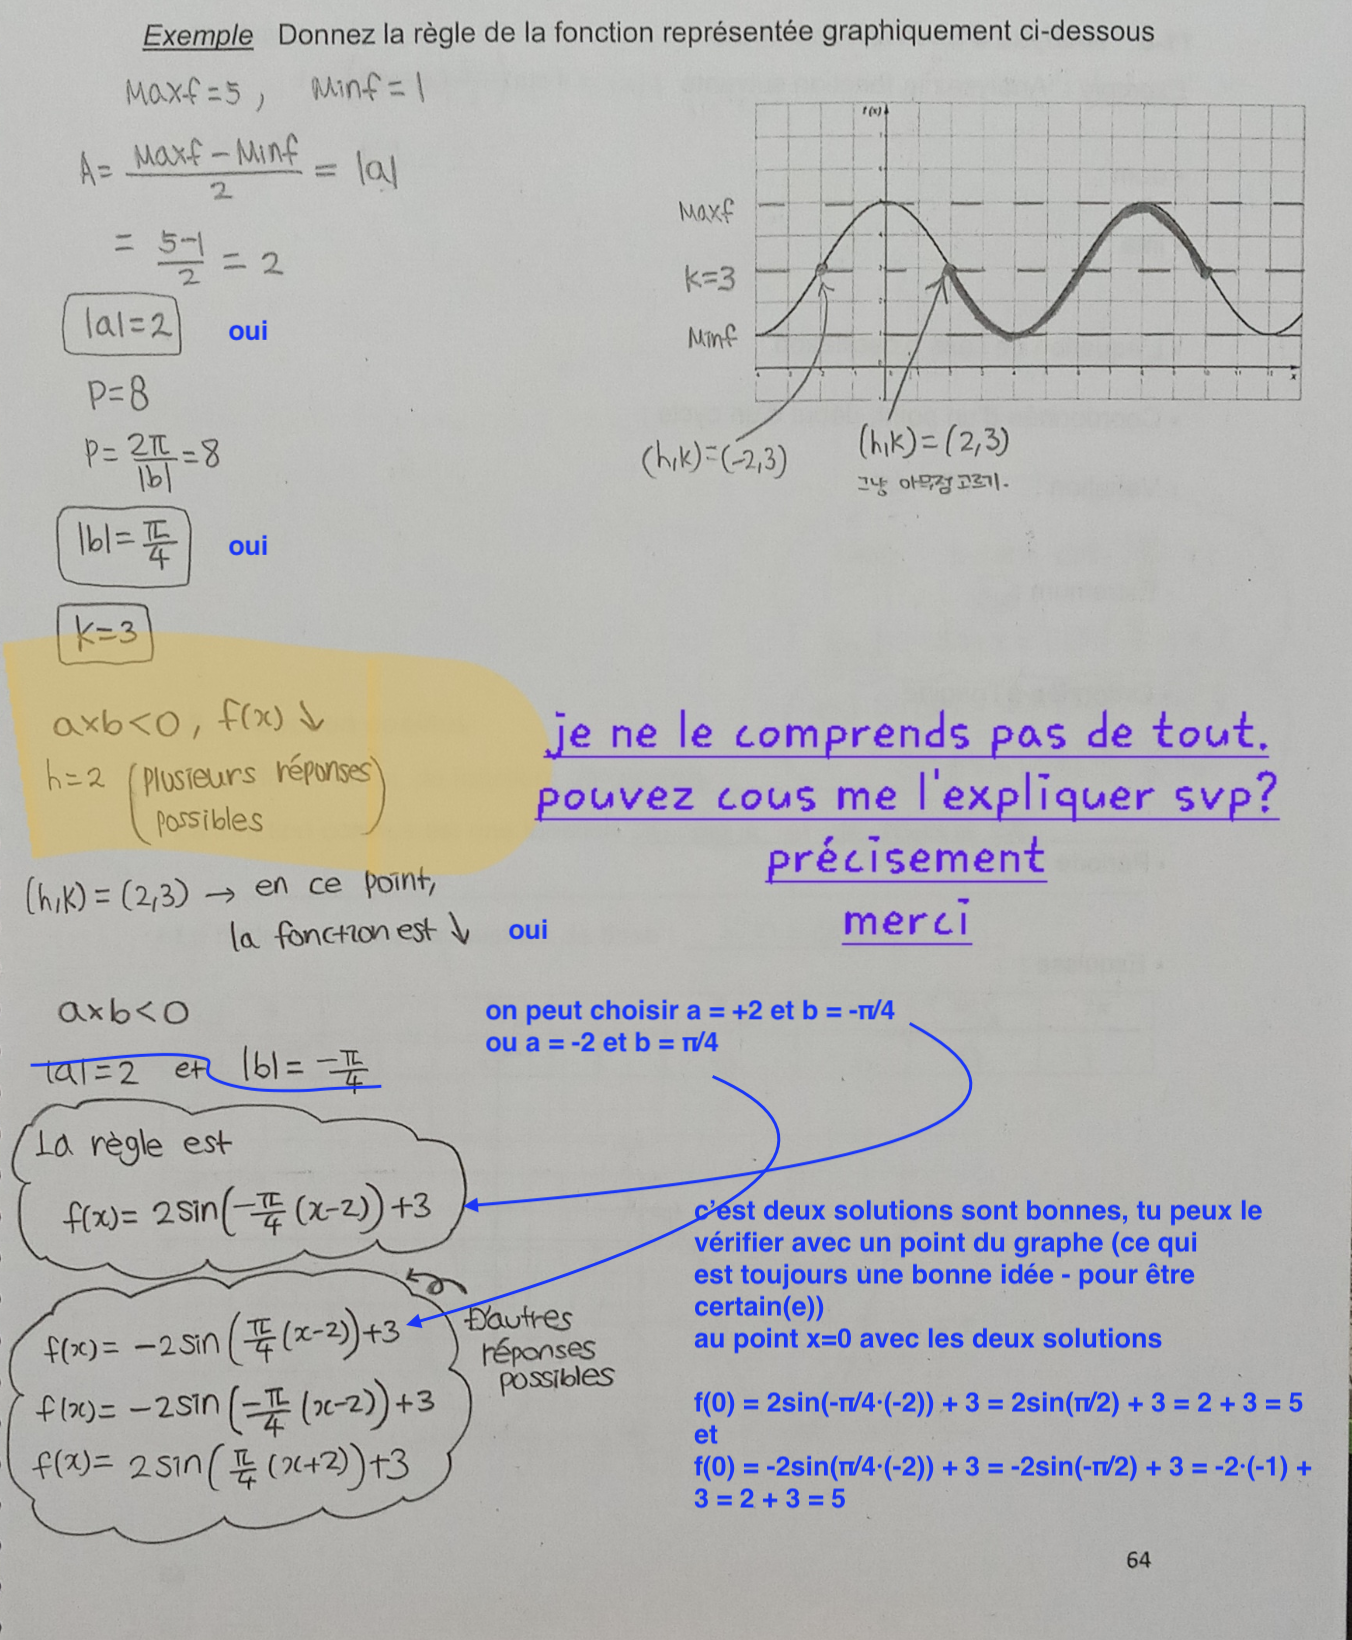 Exemple Donnez la règle de la fonction représentée graphiquement ci-dessous
Maxf=5, Minf=1
A= Maxf-Minf / 2 = |a|
= 5-1 / 2 = 2
|a|=2 oui
P=8
P= 2π / |b| =8
|b|= π/4 oui
k=3
f(x)
Maxf
k=3
Minf
x
(h,k)=(-2,3)
(h,k)=(2,3)
그냥 아무점 고르기.
axb<0, f(x)↓
h=2 (plusieurs réponses
possibles)
je ne le comprends pas de tout.
pouvez cous me l'expliquer svp?
précisement
merci
(h,k)=(2,3) → en ce point,
la fonction est ↓ oui
axb<0
|a|=2 et |b|= -π/4
on peut choisir a = +2 et b = -π/4
ou a = -2 et b = π/4
La règle est
f(x)= 2sin(-π/4 (x-2))+3
f(x)= -2sin(π/4 (x-2))+3
f(x)= -2sin(-π/4 (x-2))+3
f(x)= 2sin(π/4 (x+2))+3
D'autres
réponses
possibles
c'est deux solutions sont bonnes, tu peux le
vérifier avec un point du graphe (ce qui
est toujours une bonne idée - pour être
certain(e))
au point x=0 avec les deux solutions
f(0) = 2sin(-π/4·(-2)) + 3 = 2sin(π/2) + 3 = 2 + 3 = 5
et
f(0) = -2sin(π/4·(-2)) + 3 = -2sin(-π/2) + 3 = -2·(-1) +
3 = 2 + 3 = 5
64